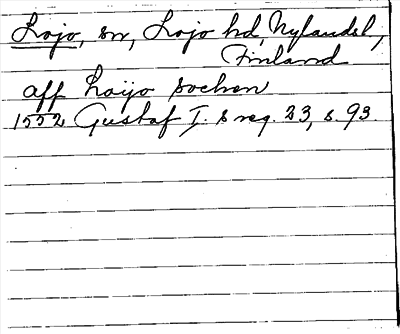 Lojo, sn, Lojo hd, Nylandsl,
Finland
aff Loijo sochen
1552 Gustaf I. s reg. 23, s. 93.